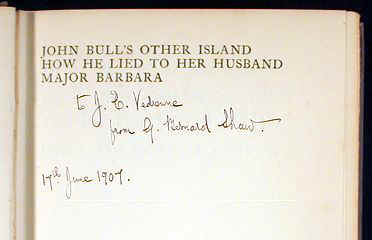 JOHN BULL'S OTHER ISLAND
HOW HE LIED TO HER HUSBAND
MAJOR BARBARA
to J. E. Vedrenne
from G. Bernard Shaw.
17th June 1907.